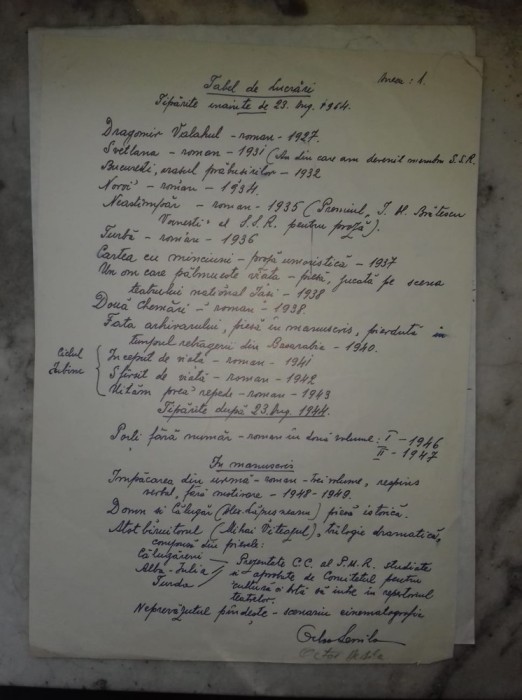 Anexa: 1.
Tabel de Lucrări
Tipărite înainte de 23. Aug. 1964.
Dragomir Valahul – roman – 1927.
Svetlana – roman – 1931 (An din care am devenit membru S.S.R.
București, orașul prăbușirilor – 1932
Noroi – roman – 1934.
Neastâmpăr – roman – 1935 (Premiul, I. Al. Brătescu
Voinești al S.S.R. pentru proză).
Turbă – roman – 1936
Cartea cu minciuni – proză umoristică – 1937
Un om care pălmuește viața – piesă, jucată pe scena
teatrului național Iași – 1938
Două chemări – roman – 1938.
Fata arhivarului, piesă în manuscris, pierdută în
timpul retragerii din Basarabia – 1940.
Ciclul
Iubim
Început de viață – roman – 1941
Sfârșit de viață – roman – 1942
Uităm prea repede – roman – 1943
Tipărite după 23. Aug. 1944.
Porți fără număr – roman în două volume: I – 1946
II – 1947
În manuscris
Împăcarea din urmă – roman – trei volume, respins
verbal, fără motivare – 1948-1949.
Domn și Călugăr (Alex. Lăpușneanu) piesă istorică.
Atotbiruitorul (Mihai Viteazul), trilogie dramatică,
compusă din piesele:
Călugăreni
Alba-Iulia
Turda
Prezentate C.C. al P.M.R. studiate
și aprobate de Comitetul pentru
cultură și artă să intre în repertoriul
teatrelor.
Neprevăzutul pândește – scenariu cinematografic